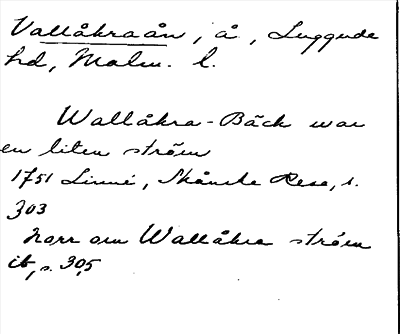 Vallåkraån, å, Luggude
hd, Malm. l.
Wallåkra-Bäck war
en liten ström
1751 Linné, Skånska Resa, s.
303
norr om Wallåkra ström
ib, s. 305